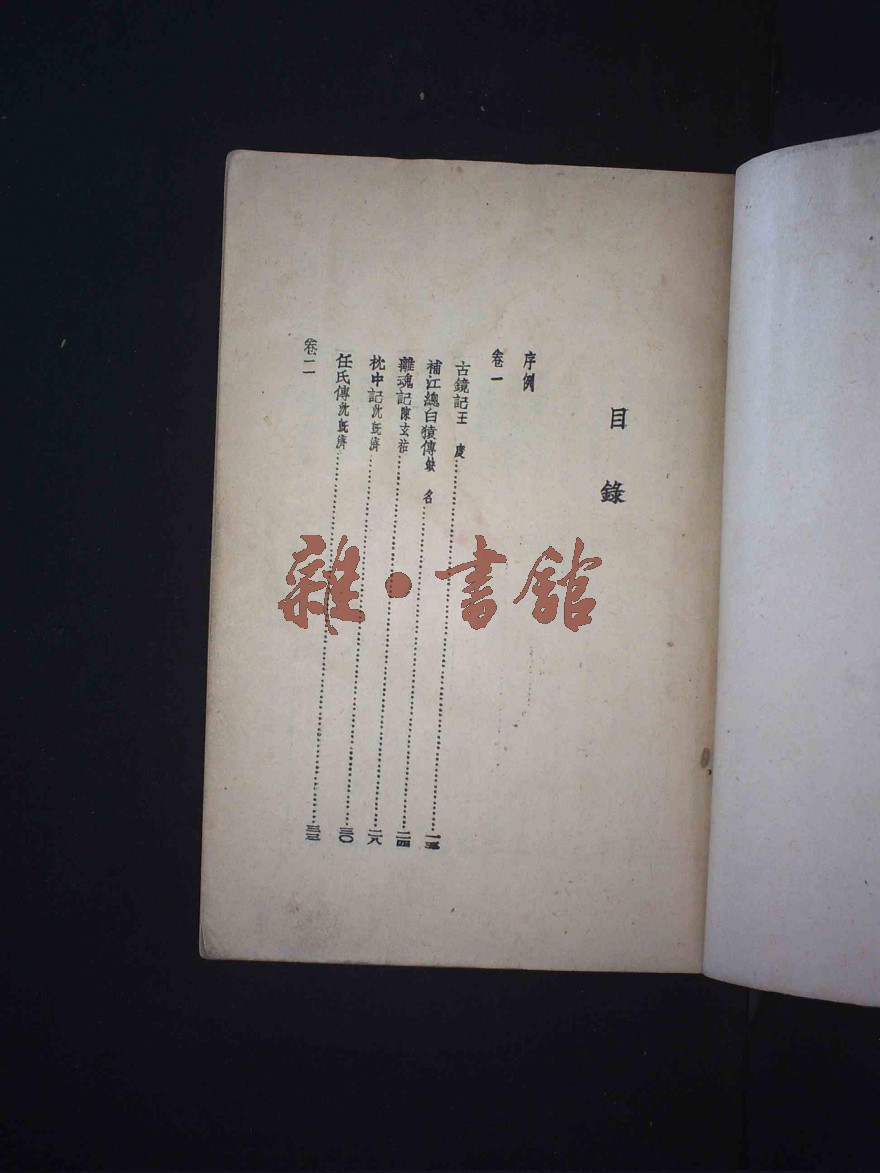 目錄
序例
卷一
古鏡記王度……一五
補江總白猿傳缺名……二四
離魂記陳玄祐……二八
枕中記沈既濟……三〇
任氏傳沈既濟……三三
卷二
雜·書館